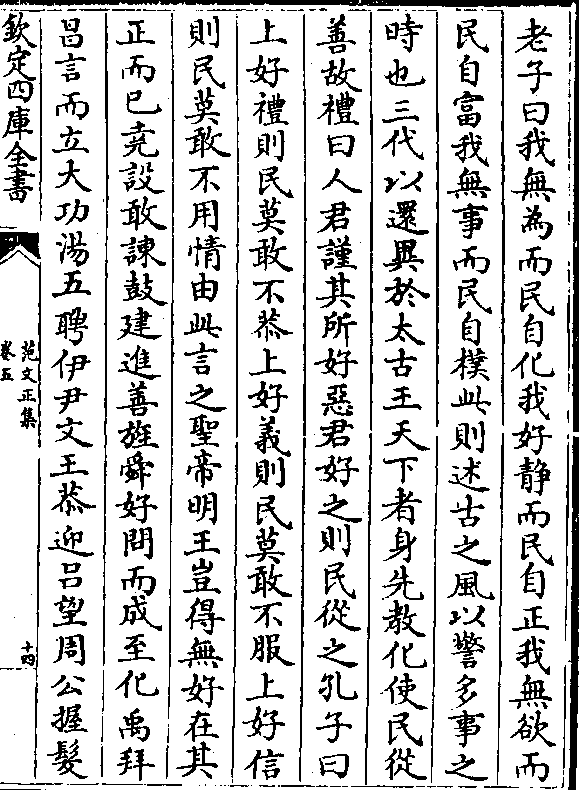 老子曰我無為而民自化我好静而民自正我無欲而
民自富我無事而民自樸此則述古之風以警多事之
時也三代以還異於太古王天下者身先教化使民從
善故禮曰人君謹其所好惡君好之則民從之孔子曰
上好禮則民莫敢不恭上好義則民莫敢不服上好信
則民莫敢不用情由此言之聖帝明王豈得無好在其
正而已堯設敢諫鼓建進善旌舜好問而成至化禹拜
昌言而立大功湯五聘伊尹文王恭迎吕望周公握髮
欽定四庫全書
范文正集
卷五
十四